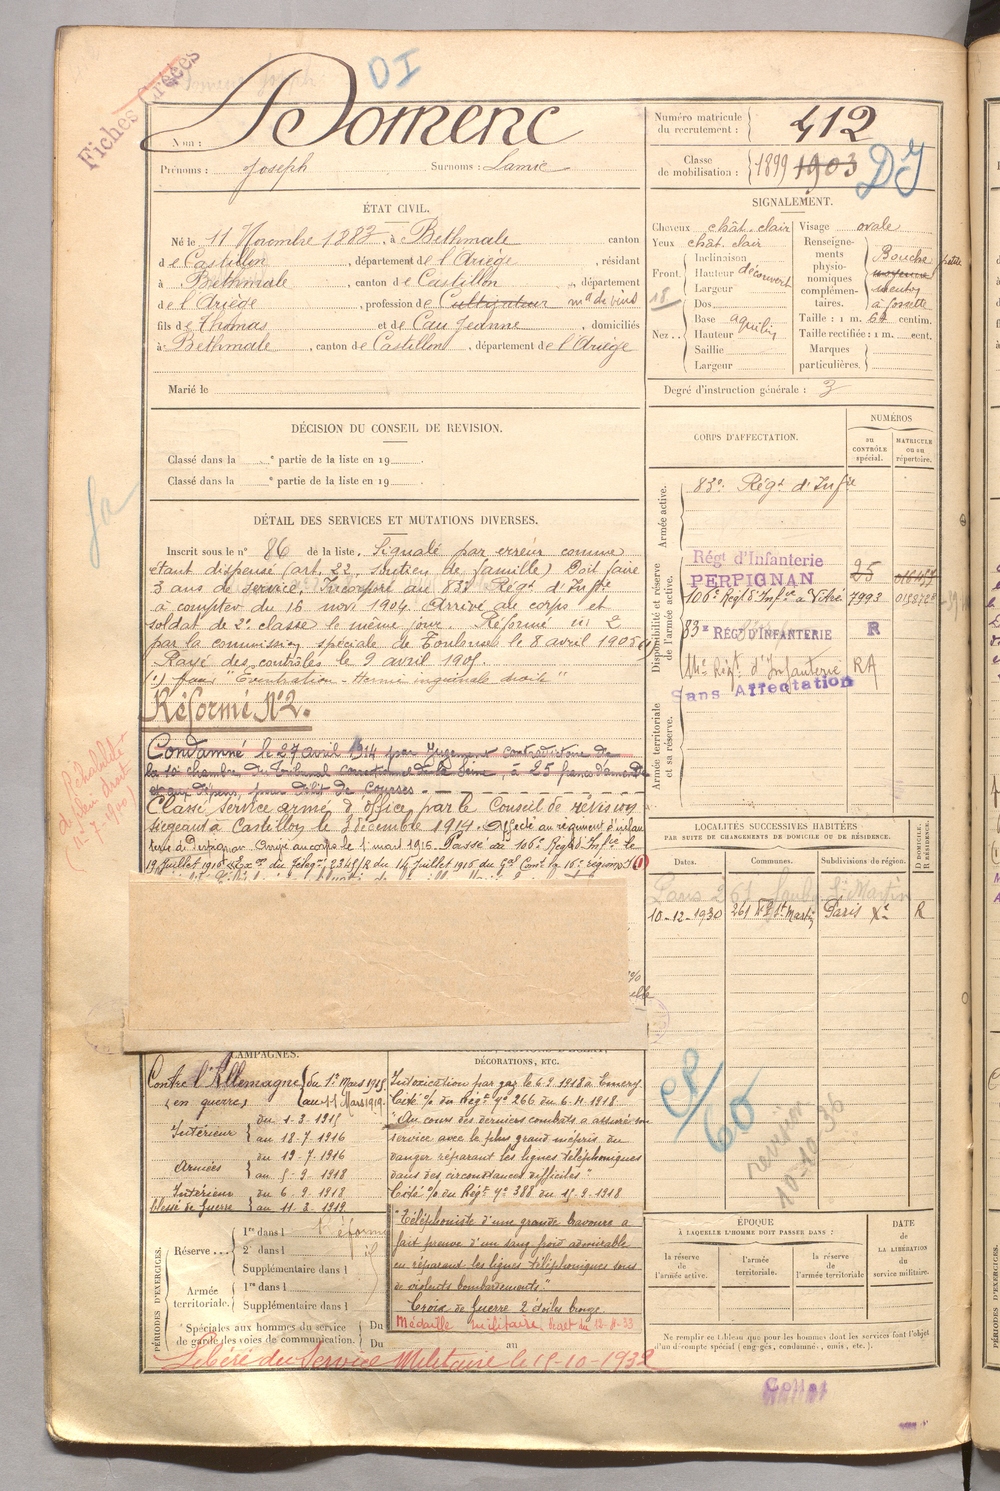 Fiches Créées
DI
Nom : Domenc
Prénoms : Joseph Surnoms : Lamic
Numéro matricule
du recrutement : 412
Classe
de mobilisation : 1899 1903
DI
ÉTAT CIVIL.
Né le 11 Novembre 1883, à Bethmale canton
de Castillon, département de l'Ariège, résidant
à Bethmale, canton de Castillon, département
de l'Ariège, profession de Cultivateur md de vins
fils de Thomas et de Cau Jeanne, domiciliés
à Bethmale, canton de Castillon, département de l'Ariège
Marié le
SIGNALEMENT.
Cheveux chât. clair
Yeux chât. clair
Front. Inclinaison
Hauteur découvert
Largeur
18
Nez .. Dos
Base aquilin
Hauteur
Saillie
Largeur
Visage ovale
Renseignements
physionomiques
complémentaires.
Bouche petite
moyenne
menton
à fossette
Taille : 1 m. 64 centim.
Taille rectifiée : 1 m. cent.
Marques
particulières.
Degré d'instruction générale : 3
DÉCISION DU CONSEIL DE REVISION.
Classé dans la e partie de la liste en 19
Classé dans la e partie de la liste en 19
DÉTAIL DES SERVICES ET MUTATIONS DIVERSES.
Inscrit sous le n° 86 de la liste. Signalé par erreur comme
étant dispensé (art. 22, soutien de famille) Doit faire
3 ans de service. Incorporé au 83e Régt d'Infrie
à compter du 16 nov 1904. Arrivé au corps et
soldat de 2e classe le même jour. Réformé n° 2
par la commission spéciale de Toulouse le 8 avril 1905 (1)
Rayé des contrôles le 9 avril 1905.
(1) pour "Eventration - Hernie inguinale droite"
Réformé N°2.
Condamné le 27 avril 1914 par Jugement contradictoire de
la 10e chambre du Tribunal correctionnel de la Seine, à 25 francs d'amende
et aux dépens, pour délit de Courses.
Classé service armé d'office par le Conseil de révision
siégeant à Castillon le 3 décembre 1914. Affecté au régiment d'infan
terie de Perpignan. Arrivé au corps le 1er mars 1915. Passé au 106e Régt d'Infrie le
19 Juillet 1916 Exon du Télég. 2345/R du 14 Juillet 1916 du Gal Comt la 16e région
Réhabilité
de plein droit
CORPS D'AFFECTATION.
NUMÉROS
au
CONTRÔLE
spécial.
MATRICULE
ou au
répertoire.
Armée active.
83e Régt d'Infie
Disponibilité et réserve
de l'armée active.
Régt d'Infanterie
PERPIGNAN 25
106e Régt d'Infie à Vitré 7993
83e RÉGT D'INFANTERIE R
14e Régt d'Infanterie RA
Sans Affectation
Armée territoriale
et sa réserve.
LOCALITÉS SUCCESSIVES HABITÉES
PAR SUITE DE CHANGEMENTS DE DOMICILE OU DE RÉSIDENCE.
Dates. Communes. Subdivisions de région. D DOMICILE. R RÉSIDENCE.
Paris 261 Faubg St Martin
10-12-1930 261 Fg St Martin Paris Xe R
CP/60
revision
10-10-36
CAMPAGNES.
Contre l'Allemagne du 1er Mars 1915
(en guerre) au 11 Mars 1919.
Intérieur du 1-3-1915
au 18-7-1916
Armées du 19-7-1916
au 5-9-1918
Intérieur du 6-9-1918
blessé de guerre au 11-3-1919
DÉCORATIONS, ETC.
Intoxication par gaz le 6.9.1918 à
Cité % du Régt n° 266 du 6-4-1918.
"Au cours des derniers combats a assuré son
service avec le plus grand mépris du
danger réparant les lignes téléphoniques
dans des circonstances difficiles"
Cité % du Régt n° 388 du 15-9-1918
"Téléphoniste d'une grande bravoure a
fait preuve d'un sang froid admirable
en réparant les lignes téléphoniques sous
de violents bombardements".
Croix de Guerre 2 étoiles bronze
Médaille militaire, décret du 12-8-33
PÉRIODES D'EXERCICES.
Réserve ... 1re dans l Réformé
2e dans l
Supplémentaire dans l
Armée
territoriale. 1re dans l
Supplémentaire dans l
Spéciales aux hommes du service
de garde des voies de communication. Du
Du au
Libéré du Service Militaire le 15-10-1932
ÉPOQUE
À LAQUELLE L'HOMME DOIT PASSER DANS :
la réserve
de
l'armée active.
l'armée
territoriale.
la réserve
de
l'armée territoriale
DATE
de
LA LIBÉRATION
du
service militaire.
Ne remplir ce tableau que pour les hommes dont les services font l'objet
d'un décompte spécial (engagés, condamnés, omis, etc.).